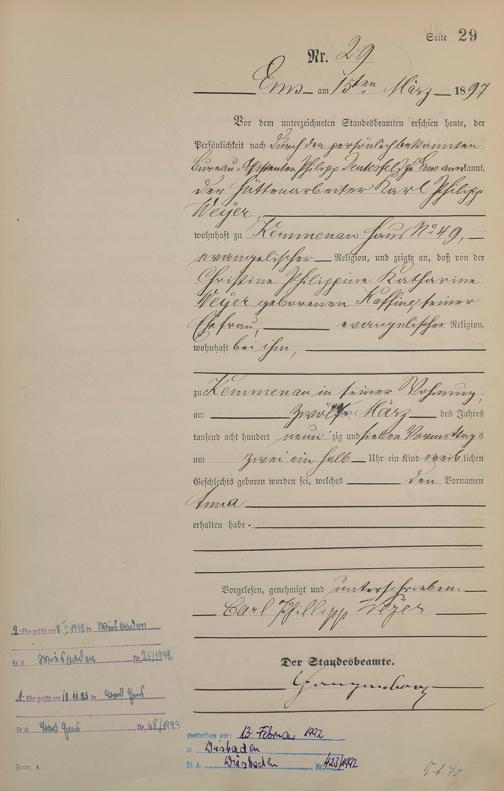 Seite 29
Nr. 29
Ems am 15ten März 1897
Vor dem unterzeichneten Standesbeamten erschien heute, der
Persönlichkeit nach durch den persönlich bekannten
Bureau-Assistenten Philipp zu Ems anerkannt,
der Hüttenarbeiter Karl Philipp
Weyer,
wohnhaft zu Kemmenau Haus No 49,
evangelischer Religion, und zeigte an, daß von der
Christine Philippine Katharine
Weyer geborenen seiner
Ehefrau, evangelischer Religion,
wohnhaft bei ihm,
zu Kemmenau in seiner Wohnung,
am zwölften März des Jahres
tausend acht hundert neunzig und sieben Vormittags
um zwei ein halb Uhr ein Kind weiblichen
Geschlechts geboren worden sei, welches den Vornamen
Anna
erhalten habe.
Vorgelesen, genehmigt und unterschrieben.
Carl Phillipp Weyer
Der Standesbeamte.
2. Ehe geschl. am in Wiesbaden
St. A. Wiesbaden Nr. 25/1942
1. Ehe geschl. am in Bad Ems
St. A. Bad Ems Nr.
gestorben am: 13. Februar 1972
in Wiesbaden
St. A. Wiesbaden Nr. 423/1972
Form. A.